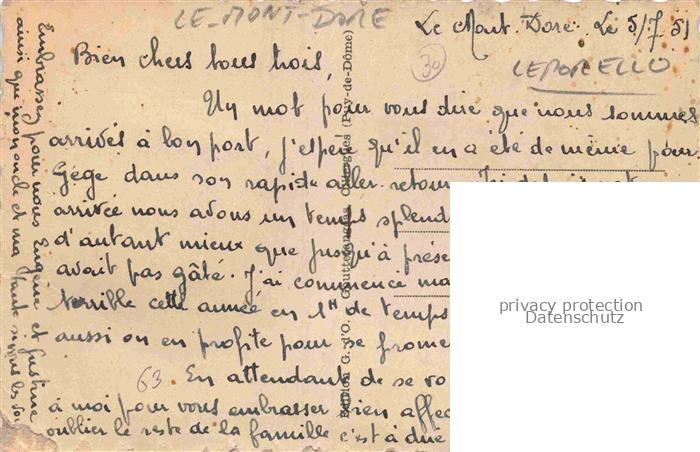 LE-MONT-DORE
Le Mont. Dore. Le 5/7 51
30
LEPORELLO
Bien chers tous trois,
Un mot pour vous dire que nous sommes
arrivés à bon port, j'espère qu'il en a été de même pour
Gégé dans son rapide aller-retour
arrivée nous avons un temps splend
d'autant mieux que jusqu'à prése
avait pas gâté. J'ai commencé ma
terrible cette année en 1H de temps
aussi on en profite pour se prome
63. En attendant de se vo
à moi pour vous embrasser bien affec
oublier le reste de la famille c'est à dire
Embrassez pour nous Eugène et Justine
ainsi que mon oncle et ma tante si vous les
Edition G. d'O. (Puy-de-Dôme)
privacy protection
Datenschutz